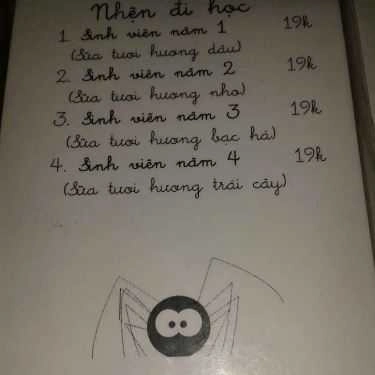 Nhện đi học
1 Sinh viên năm 1 19k
(Sữa tươi hương dâu)
2. Sinh viên năm 2 19k
(Sữa tươi hương nho)
3. Sinh viên năm 3 19k
(Sữa tươi hương bạc hà)
4. Sinh viên năm 4 19k
(Sữa tươi hương trái cây)